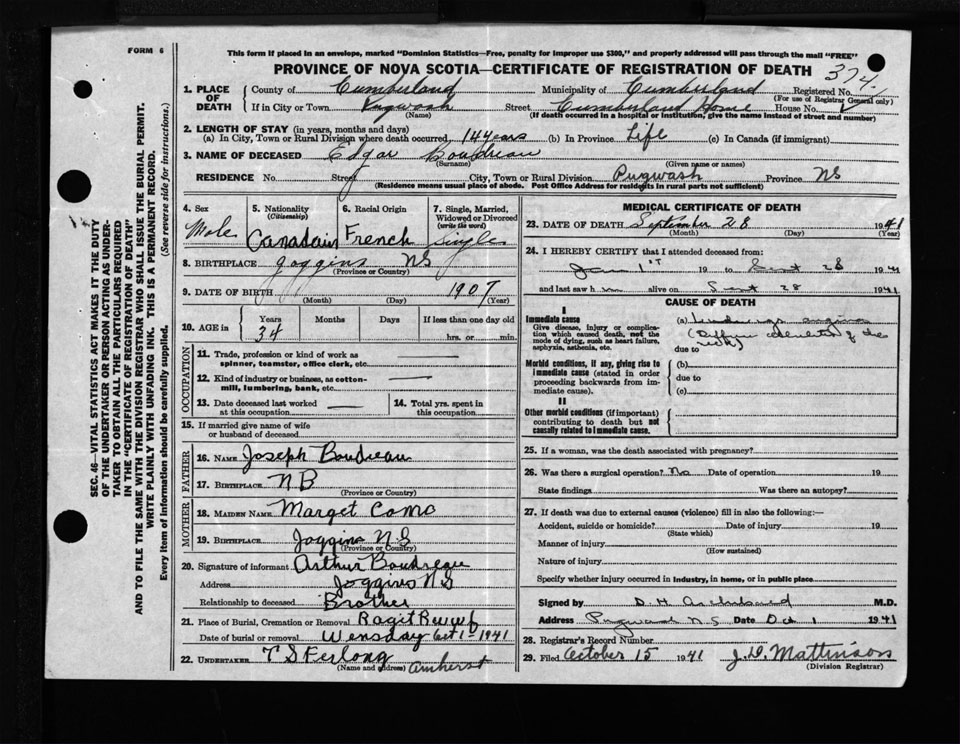 FORM 6
This form if placed in an envelope, marked "Dominion Statistics—Free, penalty for improper use $300," and properly addressed will pass through the mail "FREE"
PROVINCE OF NOVA SCOTIA—CERTIFICATE OF REGISTRATION OF DEATH
374
1. PLACE OF DEATH
County of Cumberland Municipality of Cumberland Registered No.
(For use of Registrar General only)
If in City or Town Pugwash Street Cumberland Home House No.
(Name) (If death occurred in a hospital or institution, give the name instead of street and number)
2. LENGTH OF STAY (in years, months and days)
(a) In City, Town or Rural Division where death occurred 14 years (b) In Province Life (c) In Canada (if immigrant)
3. NAME OF DECEASED Edgar Boudreau
(Surname) (Given name or names)
RESIDENCE No. Street City, Town or Rural Division Pugwash Province NS
(Residence means usual place of abode. Post Office Address for residents in rural parts not sufficient)
4. Sex
Male
5. Nationality
(Citizenship)
Canadain
6. Racial Origin
French
7. Single, Married, Widowed or Divorced
(write the word)
Single
8. BIRTHPLACE Joggins NS
(Province or Country)
9. DATE OF BIRTH 1907
(Month) (Day) (Year)
10. AGE in
Years Months Days If less than one day old
34 hrs. or min.
OCCUPATION
11. Trade, profession or kind of work as spinner, teamster, office clerk, etc.
12. Kind of industry or business, as cotton-mill, lumbering, bank, etc.
13. Date deceased last worked at this occupation
14. Total yrs. spent in this occupation
15. If married give name of wife or husband of deceased
FATHER
16. NAME Joseph Boudreau
17. BIRTHPLACE N B
(Province or Country)
MOTHER
18. MAIDEN NAME Marget Como
19. BIRTHPLACE Joggins N S
(Province or Country)
20. Signature of informant Arthur Boudreau
Address Joggins N S
Relationship to deceased Brother
21. Place of Burial, Cremation or Removal
Date of burial or removal Wensday Oct 1 - 1941
22. UNDERTAKER T S Ferlong
(Name and address) Amherst
MEDICAL CERTIFICATE OF DEATH
23. DATE OF DEATH September 28 1941
(Month) (Day) (Year)
24. I HEREBY CERTIFY that I attended deceased from:
Jan 1st 19 to Sept 28 1941
and last saw him alive on Sept 28 1941
CAUSE OF DEATH
I
Immediate cause
Give disease, injury or complication which caused death, not the mode of dying, such as heart failure, asphyxia, asthenia, etc.
(a) angina
of the
due to
Morbid conditions, if any, giving rise to immediate cause (stated in order proceeding backwards from immediate cause).
(b)
due to
(c)
II
Other morbid conditions (if important) contributing to death but not causally related to immediate cause.
25. If a woman, was the death associated with pregnancy?
26. Was there a surgical operation? No Date of operation 19
State findings Was there an autopsy?
27. If death was due to external causes (violence) fill in also the following:—
Accident, suicide or homicide? Date of injury 19
(State which)
Manner of injury
(How sustained)
Nature of injury
Specify whether injury occurred in industry, in home, or in public place
Signed by D. H. Archibald M.D.
Address Pugwash N S Date Oct 1 1941
28. Registrar's Record Number
29. Filed October 15 1941 J. D. Mattinson
(Division Registrar)
SEC. 46—VITAL STATISTICS ACT MAKES IT THE DUTY
OF THE UNDERTAKER OR PERSON ACTING AS UNDER-
TAKER TO OBTAIN ALL THE PARTICULARS REQUIRED
IN THE "CERTIFICATE OF REGISTRATION OF DEATH"
AND TO FILE THE SAME WITH THE DIVISION REGISTRAR WHO SHALL ISSUE THE BURIAL PERMIT.
WRITE PLAINLY WITH UNFADING INK. THIS IS A PERMANENT RECORD.
Every item of information should be carefully supplied. (See reverse side for instructions.)